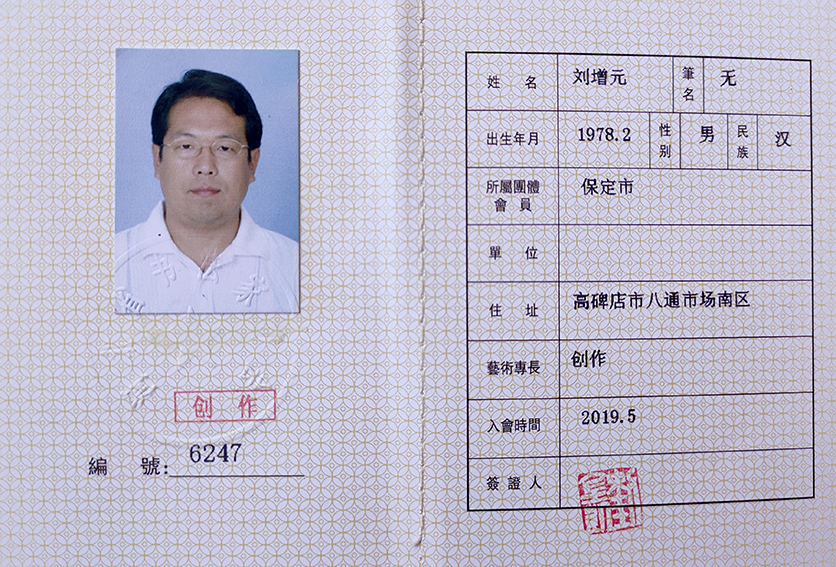 创 作
編 號: 6247
姓 名 刘增元 筆名 无
出生年月 1978.2 性别 男 民族 汉
所屬團體 保定市
會 員
單 位
住 址 高碑店市八通市场南区
藝術專長 创作
入會時間 2019.5
簽 證 人